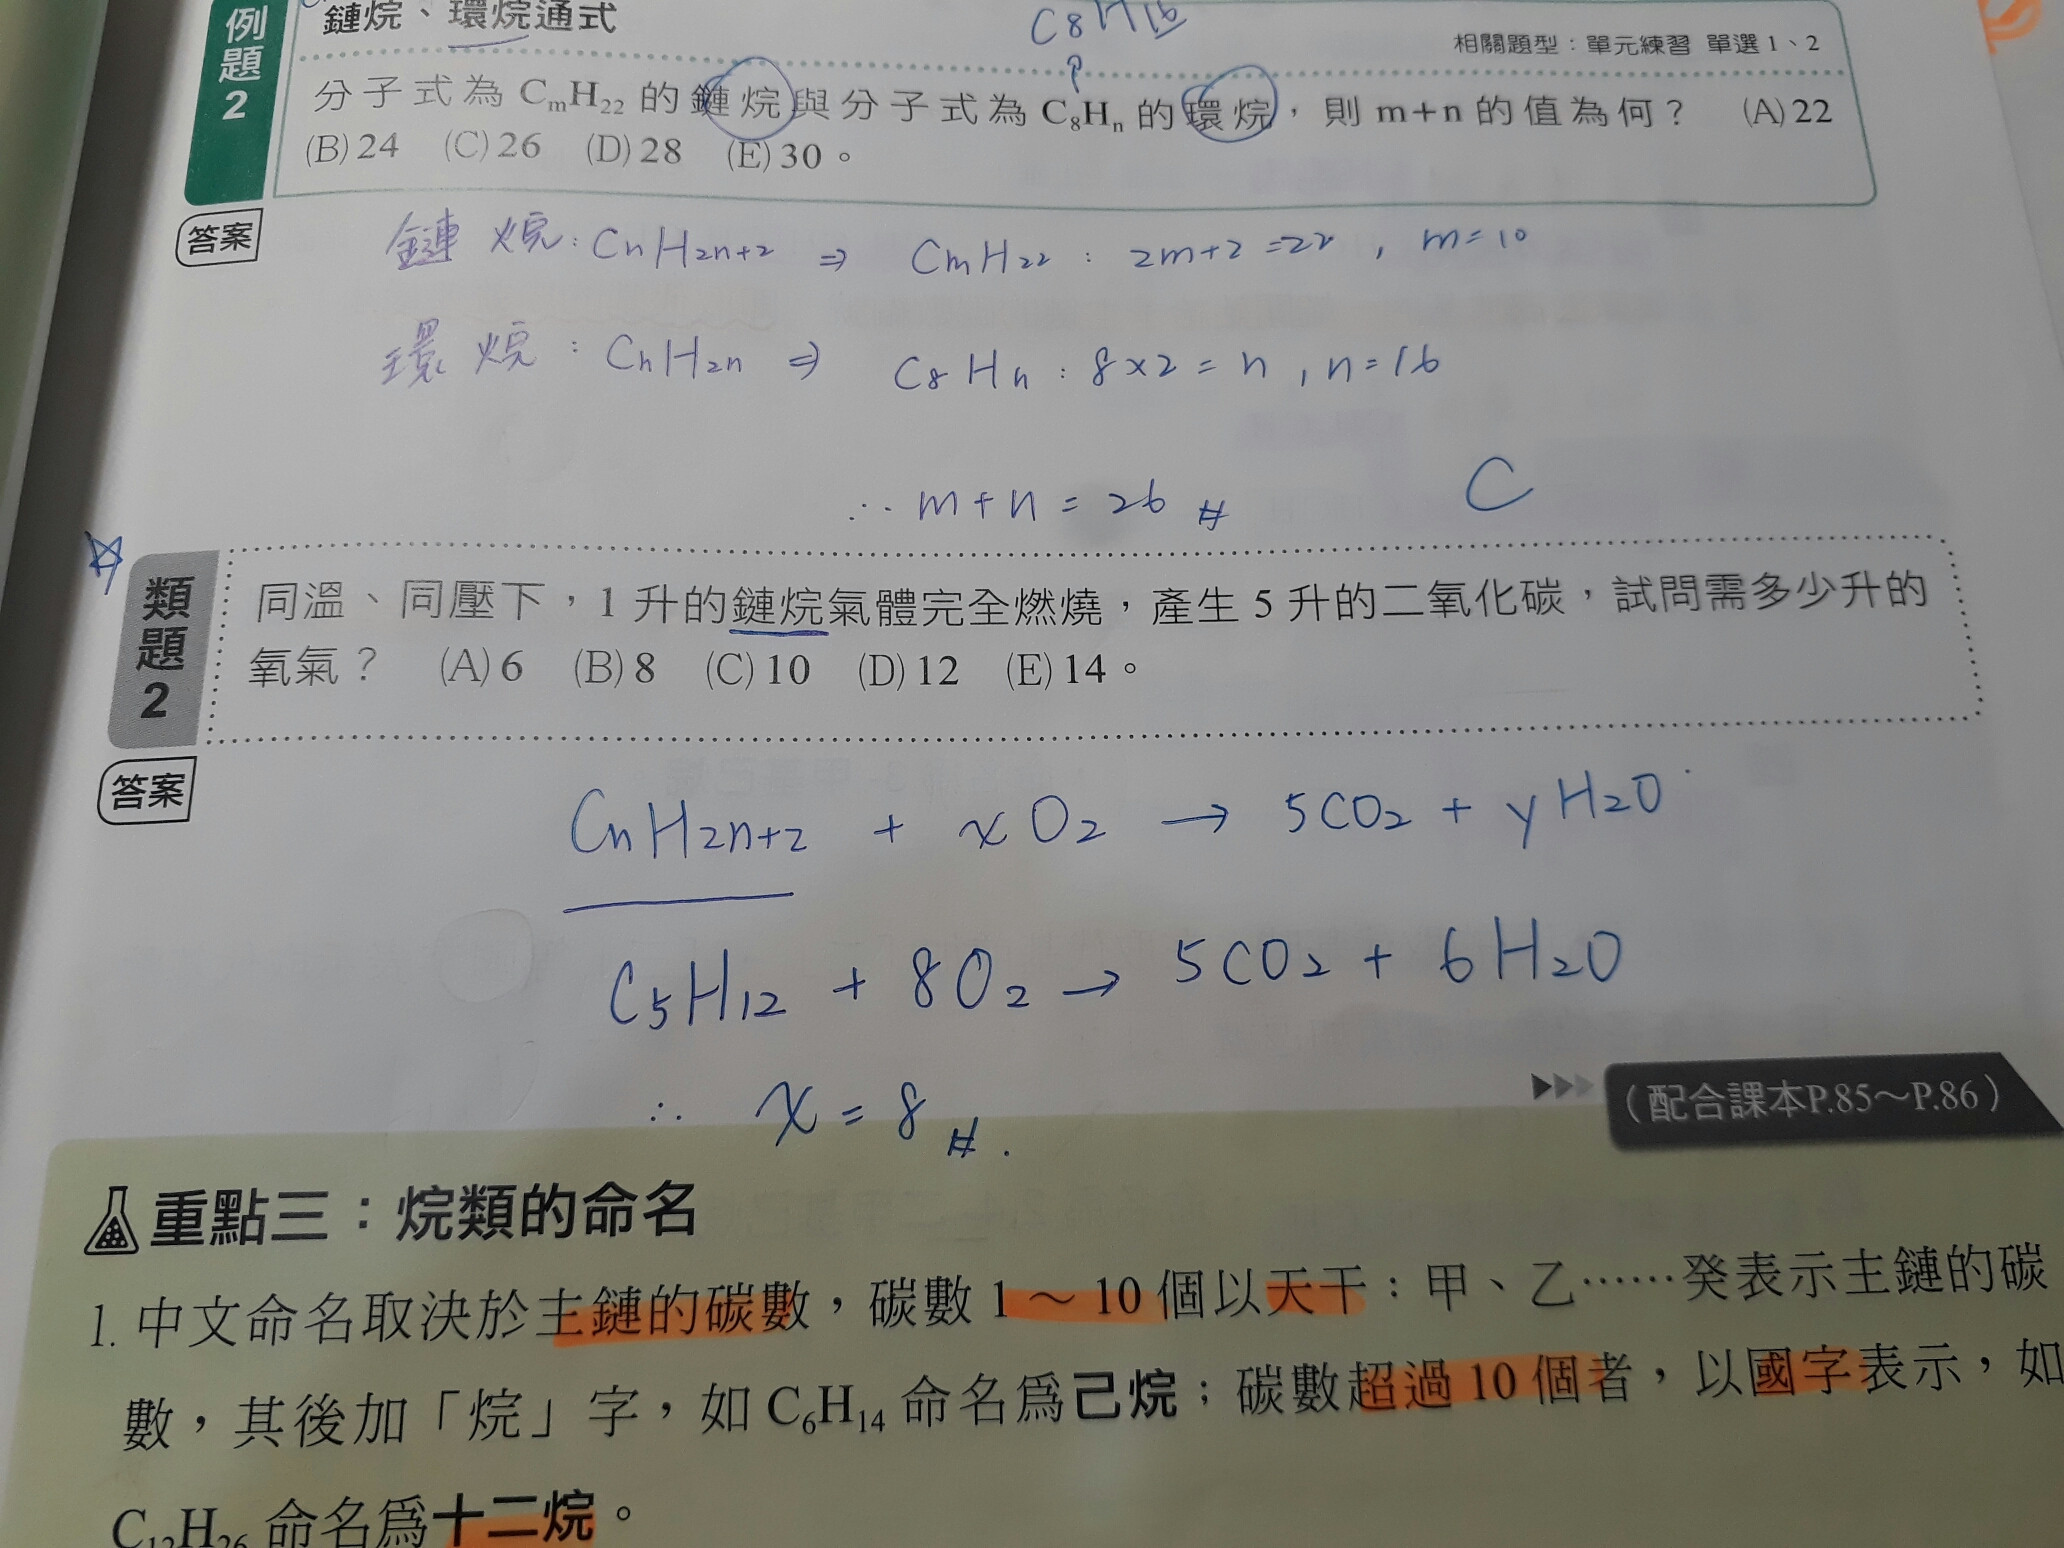 例題2
鏈烷、環烷通式
C8H16
相關題型：單元練習 單選1、2
分子式為 CmH22 的鏈烷與分子式為 C8Hn 的環烷，則 m+n 的值為何？ (A) 22
(B) 24 (C) 26 (D) 28 (E) 30。
答案
鏈烷：CnH2n+2 ⇒ CmH22 : 2m+2=22 , m=10
環烷：CnH2n ⇒ C8Hn : 8×2=n , n=16
∴ m+n=26 #
C
類題2
同溫、同壓下，1 升的鏈烷氣體完全燃燒，產生 5 升的二氧化碳，試問需多少升的
氧氣？ (A) 6 (B) 8 (C) 10 (D) 12 (E) 14。
答案
CnH2n+2 + xO2 → 5CO2 + yH2O
C5H12 + 8O2 → 5CO2 + 6H2O
∴ x=8 #.
（配合課本P.85～P.86）
重點三：烷類的命名
1. 中文命名取決於主鏈的碳數，碳數 1～10 個以天干：甲、乙……癸表示主鏈的碳
數，其後加「烷」字，如 C6H14 命名爲己烷；碳數超過 10 個者，以國字表示，如
C12H26 命名爲十二烷。